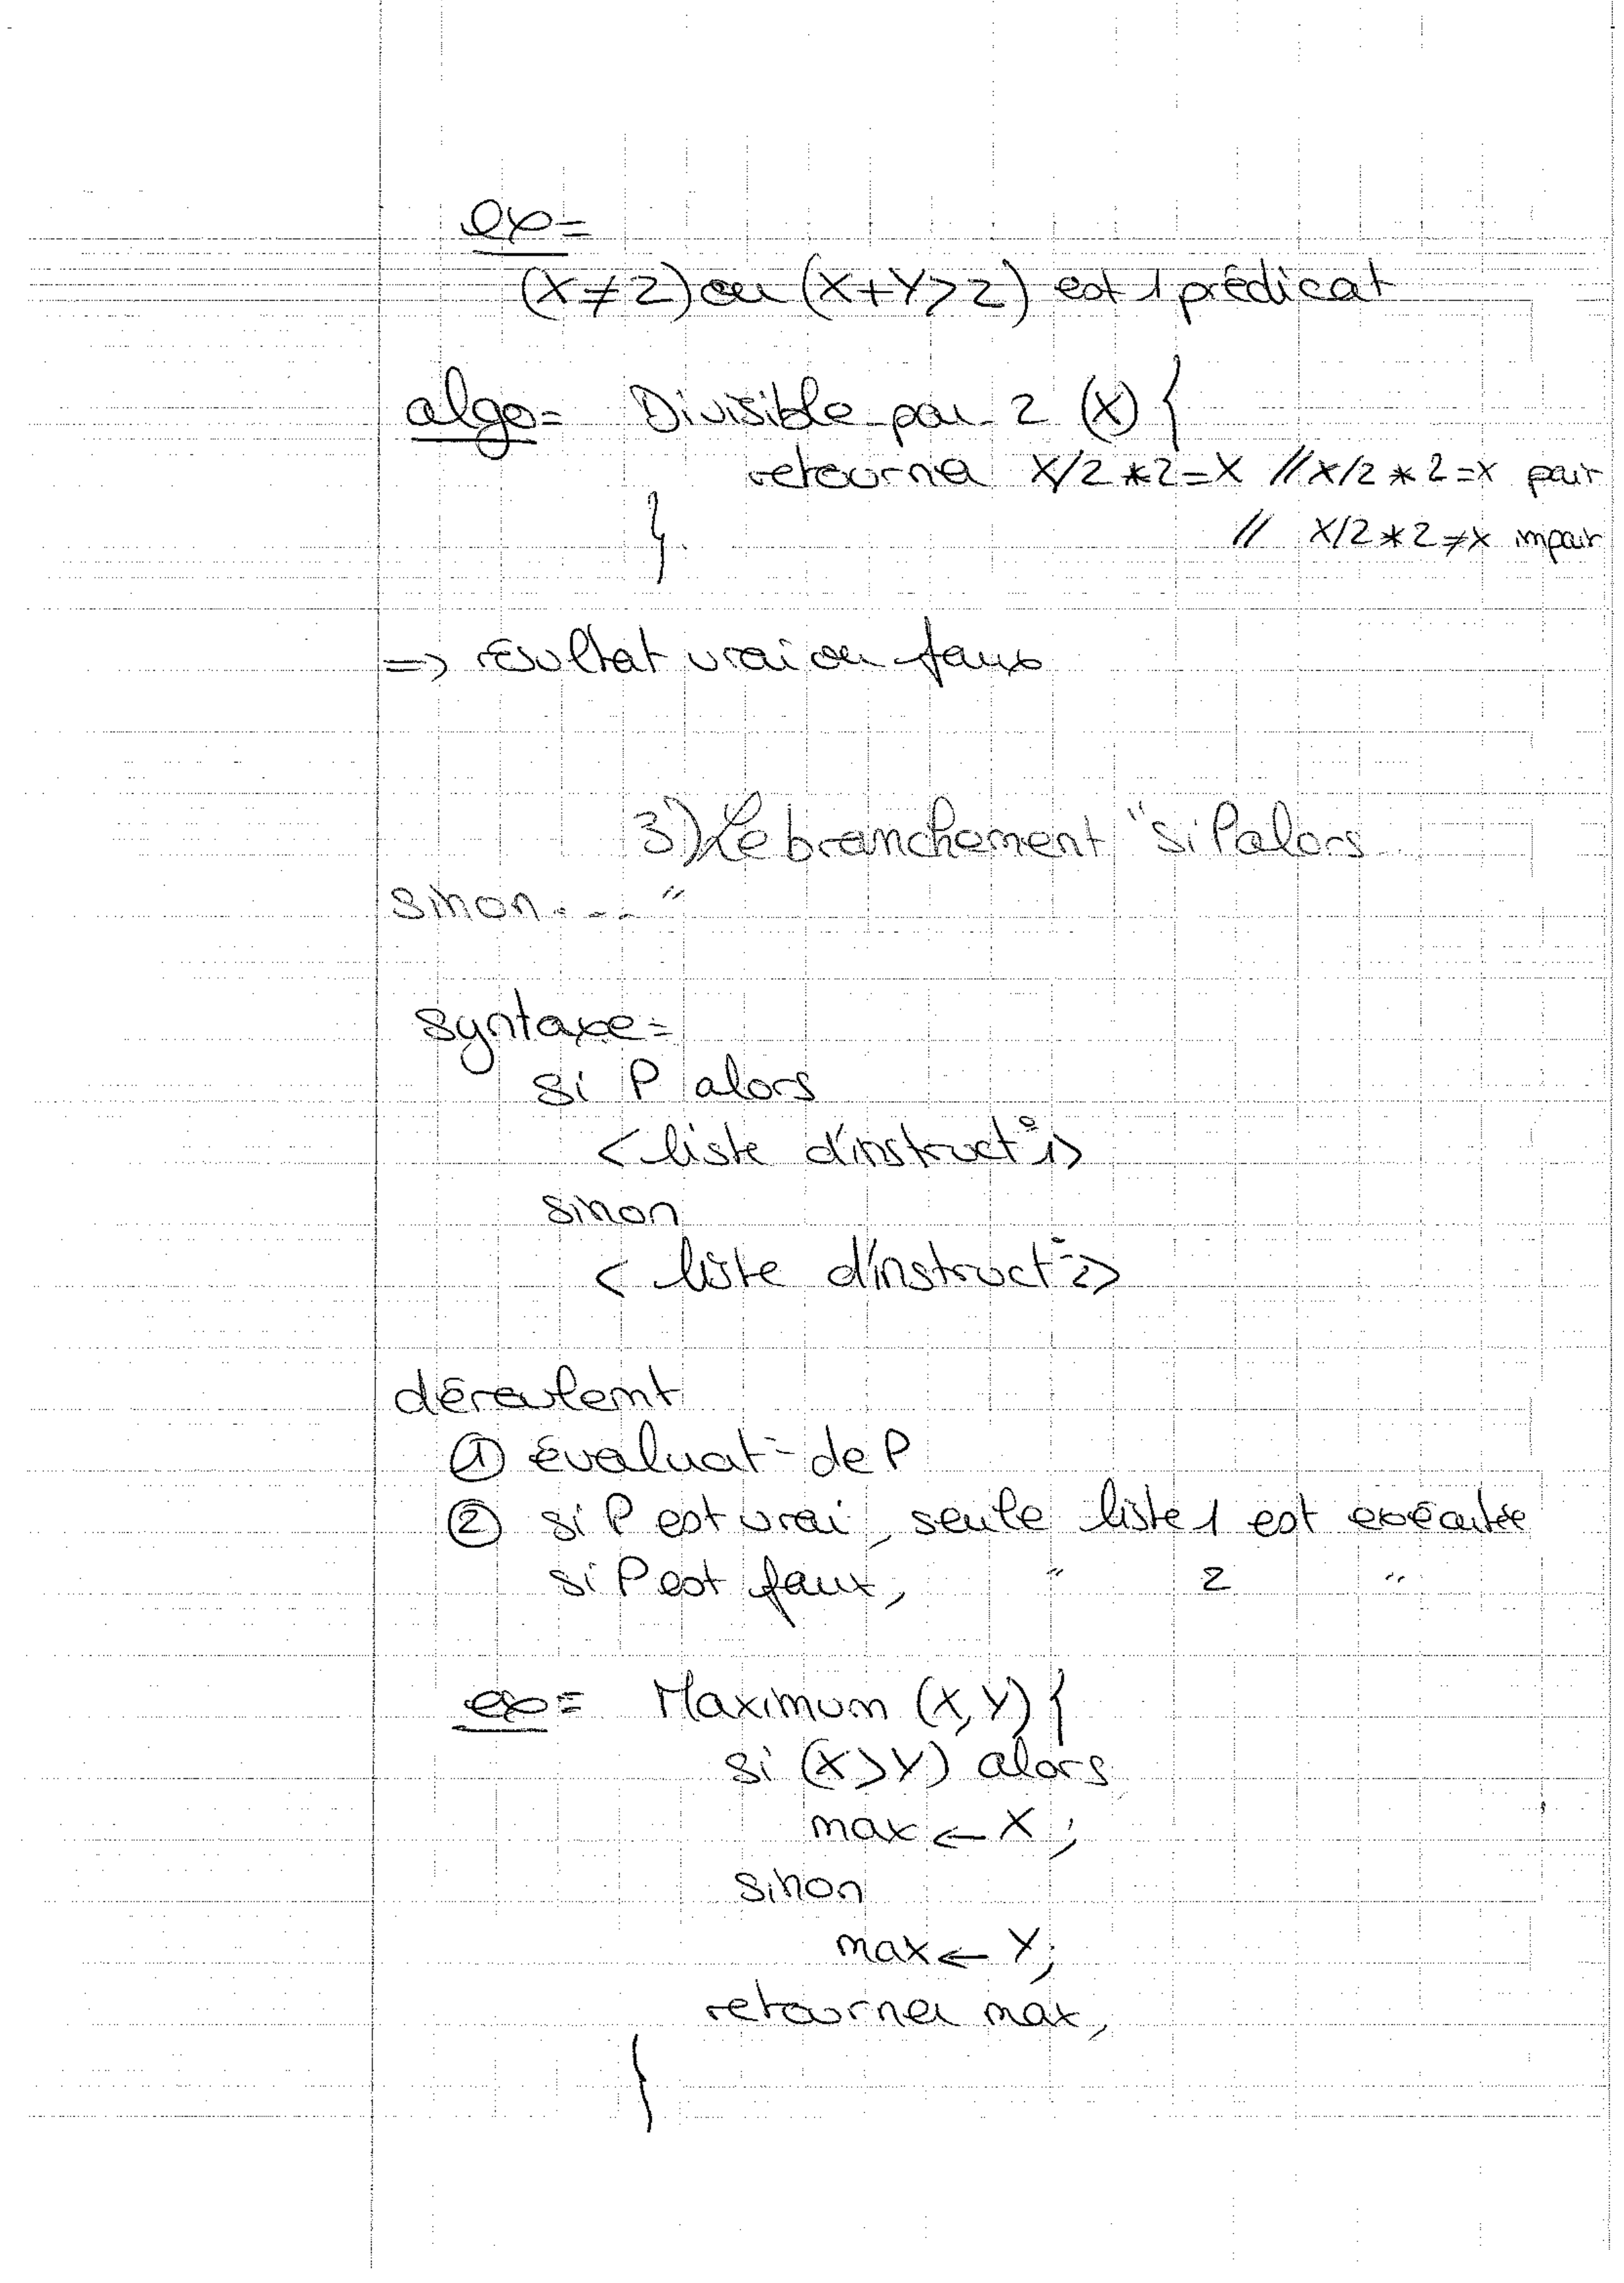 ex =
(X ≠ 2) ou (X+Y > 2) est 1 prédicat
algo = Divisible_par_2 (X) {
retourner X/2 * 2 = X // X/2 * 2 = X pair
// X/2 * 2 ≠ X impair
}
=> résultat vrai ou faux
3) Le branchement "si P alors
sinon . - - . "
syntaxe =
si P alors
< liste d'instruct° 1>
sinon
< liste d'instruct° 2>
déroulemt
① évaluat° de P
② si P est vrai, seule liste 1 est exécutée
si P est faux, " 2 "
ex = Maximum (X, Y) {
si (X > Y) alors
max ← X ;
sinon
max ← Y;
retourner max,
}